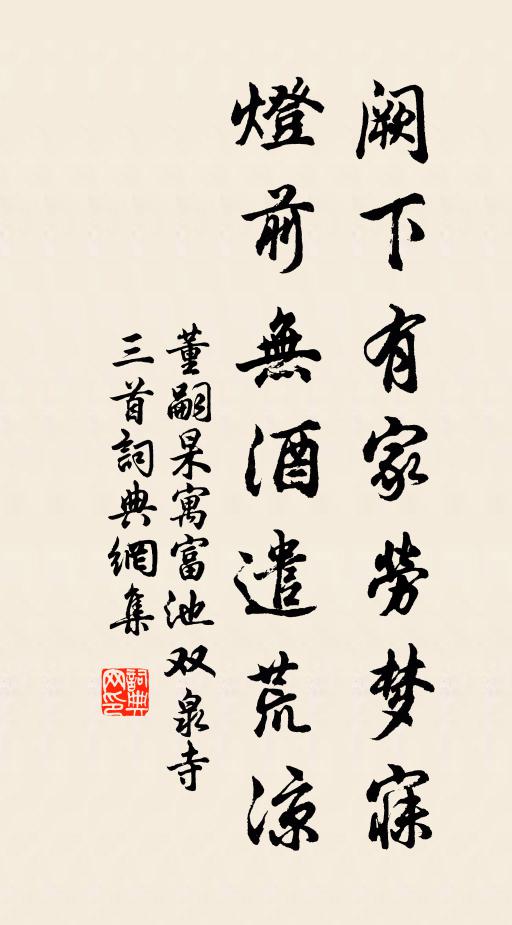 阙下有家勞梦寐
燈前無酒遣荒凉
董嗣杲寓富池双泉寺
三首詞典網集
詞典网印